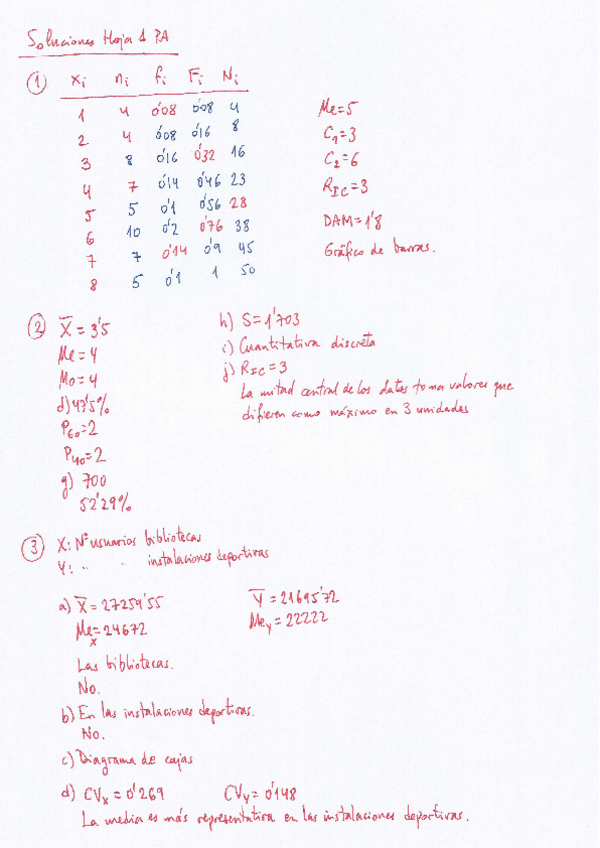 Soluciones Hoja 1 PA
① xi ni fi Fi Ni
1 4 0'08 0'08 4
2 4 0'08 0'16 8
3 8 0'16 0'32 16
4 7 0'14 0'46 23
5 5 0'1 0'56 28
6 10 0'2 0'76 38
7 7 0'14 0'9 45
8 5 0'1 1 50
Me=5
C₁=3
C₂=6
R_IC=3
DAM=1'8
Gráfico de barras.
② X̅ = 3'5
Me=4
Mo=4
d) 43'5%
P₆₀=2
P₄₀=2
g) 700
52'29%
h) S=1'703
i) Cuantitativa discreta
j) R_IC=3
La mitad central de los datos toma valores que
difieren como máximo en 3 unidades
③ X: Nº usuarios bibliotecas
Y: " " instalaciones deportivas
a) X̅ = 27259'55 Y̅ = 21695'72
Me_x=24672 Me_y=22222
Las bibliotecas.
No.
b) En las instalaciones deportivas.
No.
c) Diagrama de cajas
d) CV_x = 0'269 CV_y = 0'148
La media es más representativa en las instalaciones deportivas.